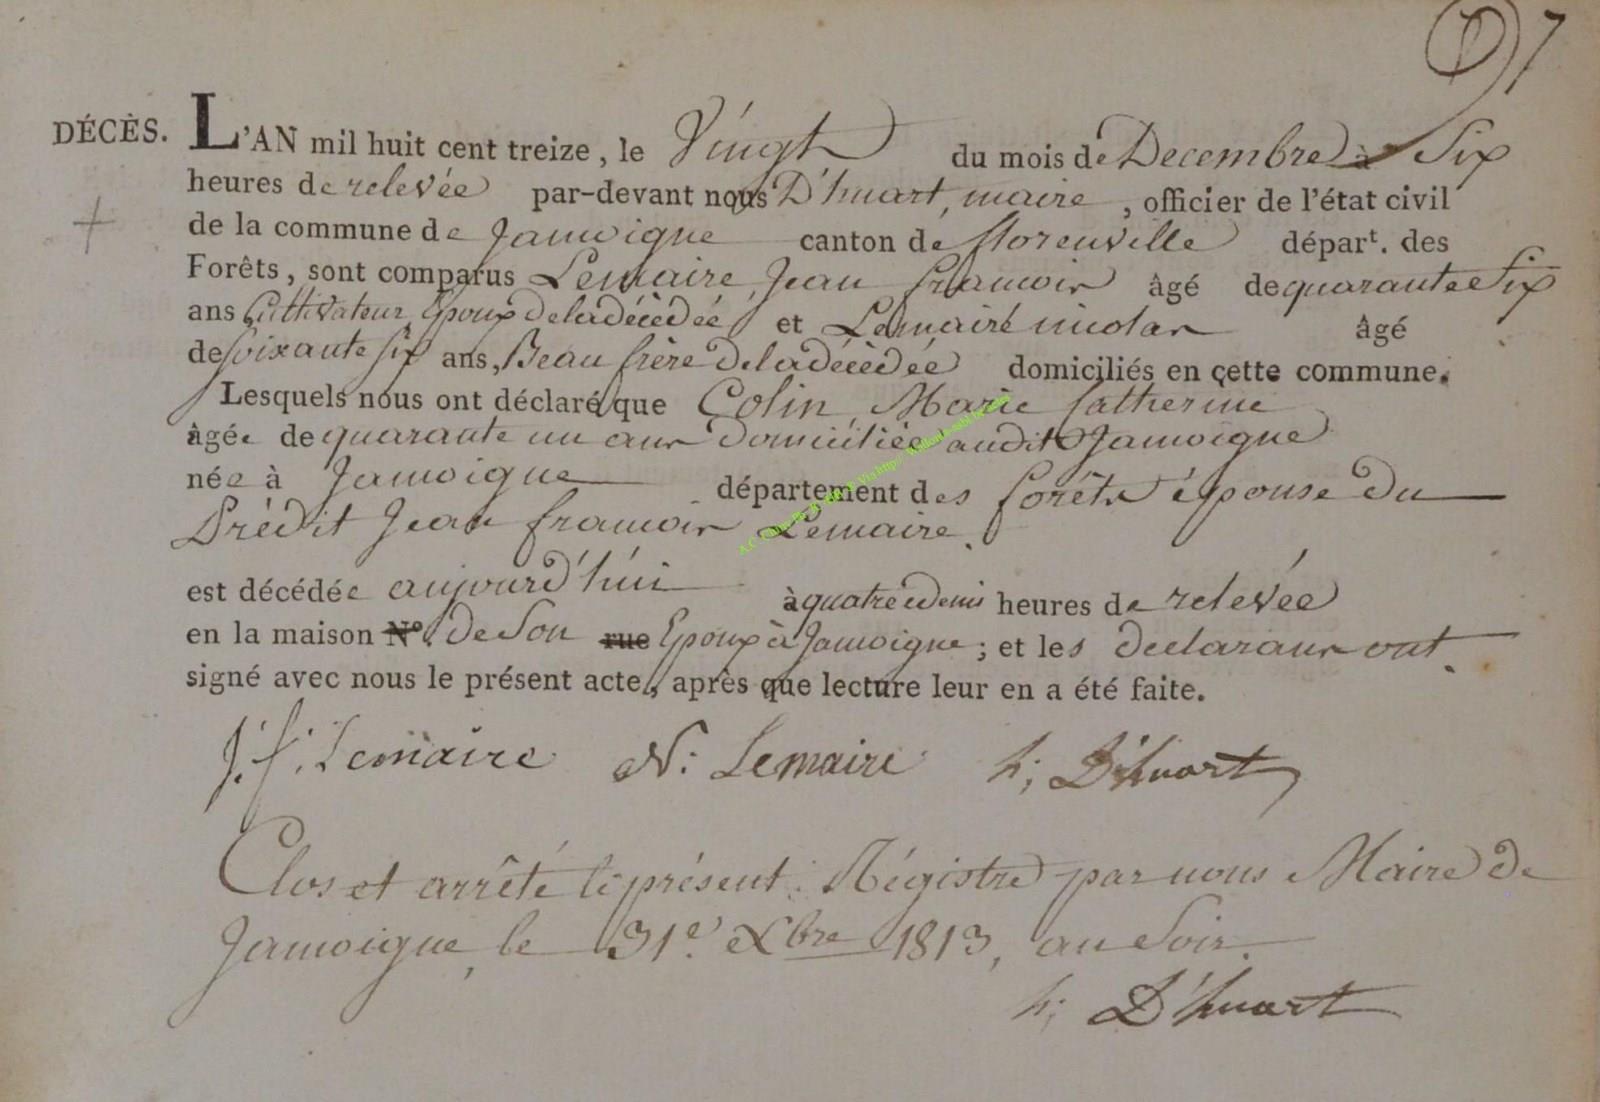 7
DÉCÈS. L'AN mil huit cent treize, le Vingt du mois de Decembre à Six
heures de relevée par-devant nous D'huart, maire, officier de l'état civil
de la commune de Jamoigne canton de florenville départ. des
Forêts, sont comparus Lemaire, Jean francois âgé de quarante Six
ans Cultivateur, Epoux de la décédée et Lemaire nicolas âgé
de Soixante Six ans, Beau frère de la décédée domiciliés en cette commune.
Lesquels nous ont déclaré que Colin, Marie Catherine
âgée de quarante un ans domiciliée audit Jamoigne
née à Jamoigne département des forêts épouse du
Prédit Jean francois Lemaire.
est décédée aujourd'hui à quatre et demi heures de relevée
en la maison N° de Son rue Epoux à Jamoigne; et les declarans ont
signé avec nous le présent acte, après que lecture leur en a été faite.
J. f. Lemaire N. Lemaire h; D'huart
Clos et arrêté le présent Régistre par nous Maire de
Jamoigne, le 31e Xbre 1813, au Soir.
h; D'huart